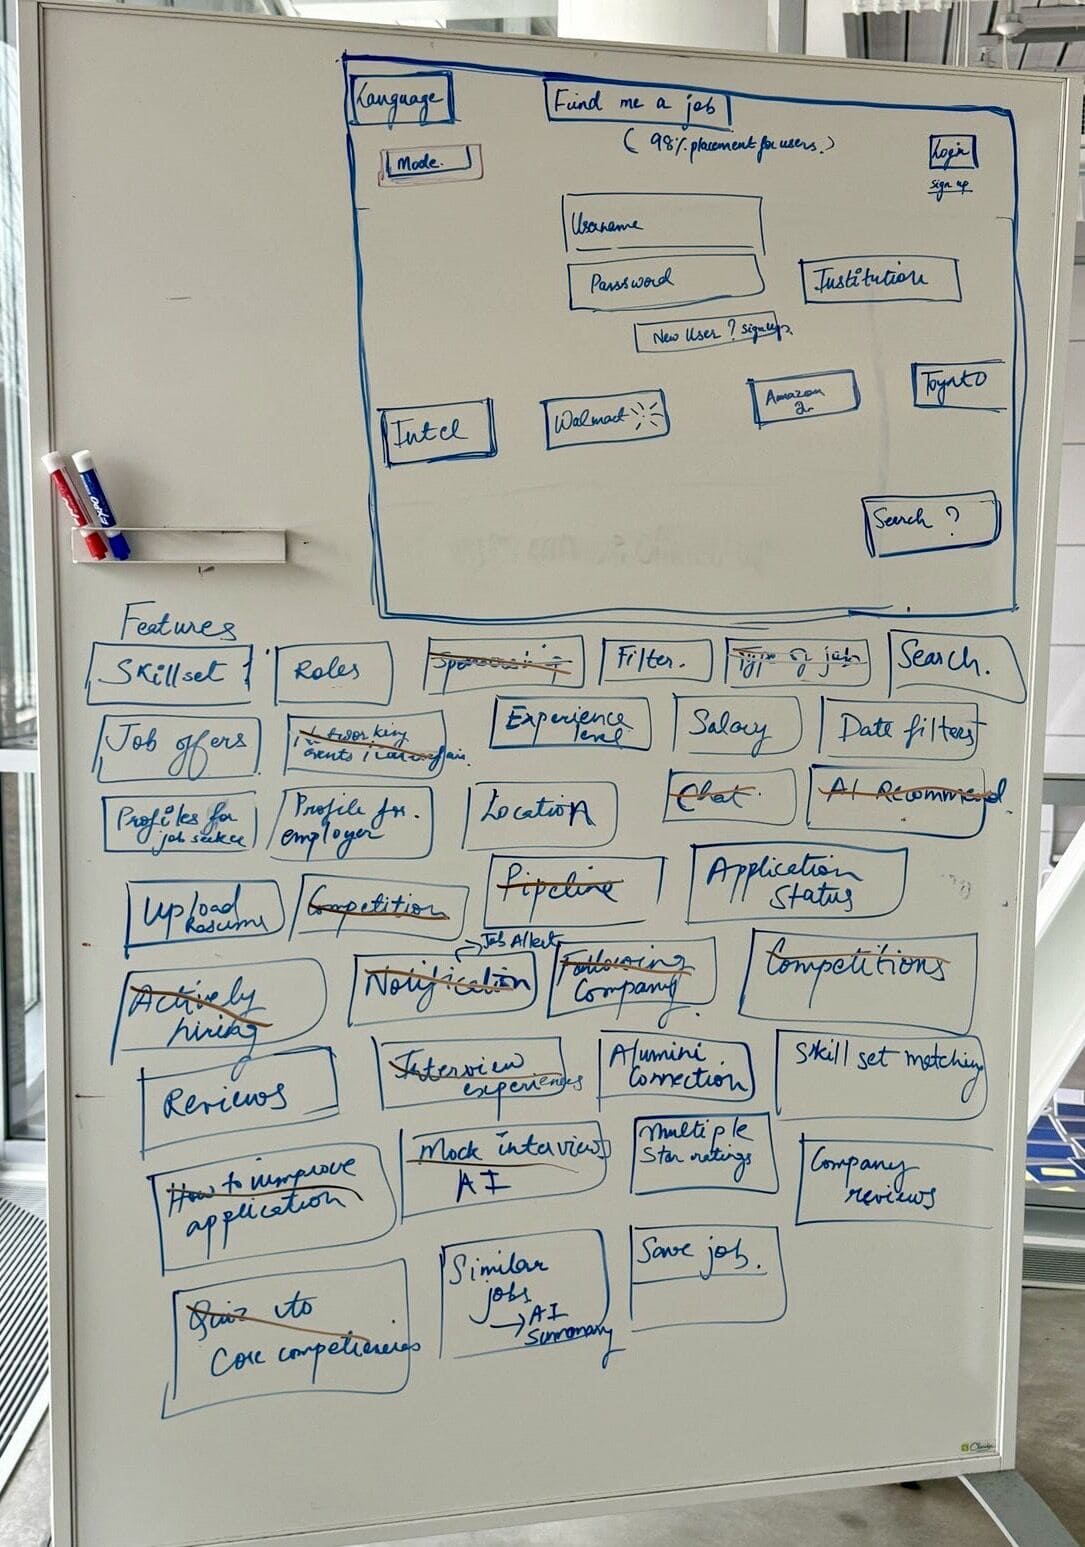 Language
Find me a job
(98% placement for users.)
Mode.
Login
sign up
Username
Passsword
Institution
New User ? signup.
Intel
Walmart
Amazon
Search ?
Features
Skillset
Roles
Filter.
Type of job
Search.
Job offers
Networking
events
Experience
level
Salary
Date filters
Profiles for
job seeker
Profile for.
employer
Location
Chat.
AI Recommend.
Upload
Resume
Competition
Pipeline
Application
Status
Job Alert
Actively
hiring
Notification
Following
Company
Competitions
Reviews
Interview
experiences
Alumini
Connection
Skill set matching
How to improve
application
Mock interviews
AI
Multiple
Star ratings
Company
reviews
Quiz
Core competiencies
Similar
jobs
→ AI
Summary
Save job.